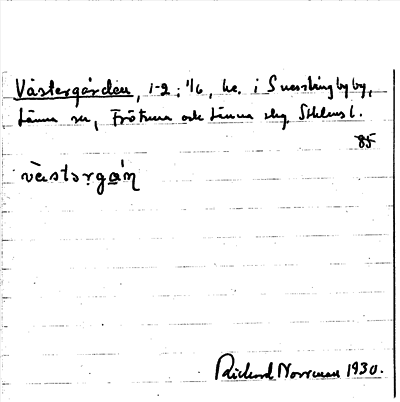 Västergården, 1-2: 1/6, he. i Snesslingby by,
Länna sn, Frötuna och Länna skg, Sthlms l.
85
västərgάṇ
Rickard Norrman 1930.